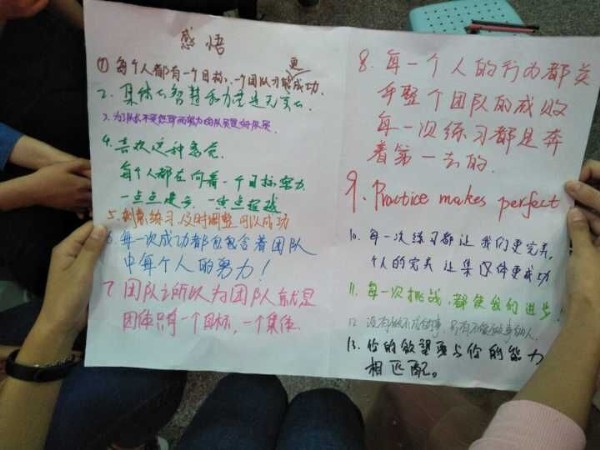 感悟
① 每个人都有一个目标,一个团队才能更成功.
2. 集体的智慧和力量是无穷的.
4. 喜欢这种感觉.
每个人都在向着一个目标努力
一点点进步 一点点超越
5. 刻意练习 及时调整 可以成功
6. 每一次成功都包含着团队
中每个人的努力!
7. 团队之所以为团队 就是
团体只有一个目标,一个集体.
8. 每一个人的行为都关
乎整个团队的成败
每一次练习都是奔
着第一去的.
9. Practice makes perfect
10. 每一次练习都让我们更完美,
个人的完美让集体更成功
11. 每一次挑战,都使我们进步!
12. 没有做不成的事,只有不会做事的人.
13. 你的欲望要与你的能力
相匹配.